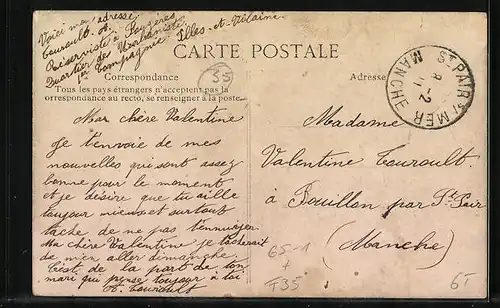 Voici mon adresse
Tourault. A.
Réserviste à Fougères
Quartier des Urbanistes
1re Compagnie Illes-et-Vilaine
CARTE POSTALE
35
Correspondance
Adresse
Tous les pays étrangers n'acceptent pas la
correspondance au recto, se renseigner à la poste
ST PAIR S/ MER
8-2
MANCHE
Ma chère Valentine
Je t'envoie de mes
nouvelles qui sont assez
bonne pour le moment
et je désire que tu aille
toujour mieux et surtout
tache de ne pas t'ennuiyer.
Ma chère Valentine je tacherait
de m'en aller dimanche.
C'est de la part de ton
mari qui pense toujour à toi
A. Tourault
Madame
Valentine Tourault.
à Bouillon par St Pair
(Manche)
GS-1
+
F35
6T